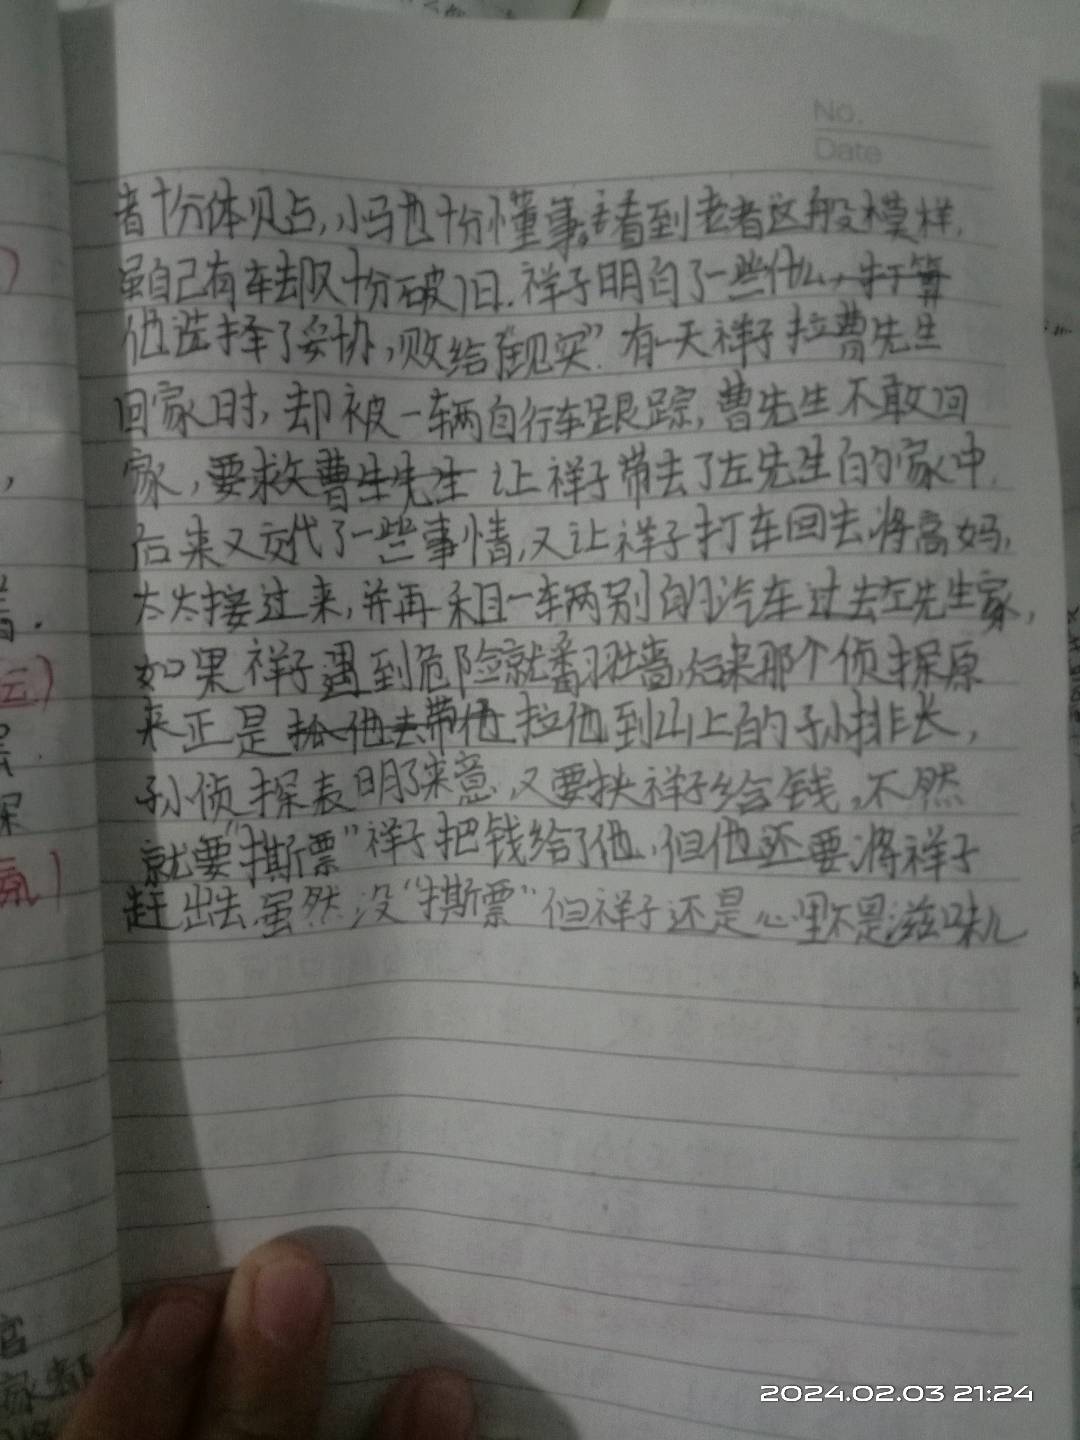 No.
Date
者十分体贝占,小马也十分懂事。看到老者这般模样,
虽自己有车却又十分破旧.祥子明白了一些什么,打算
他选择了妥协,败给"现实".有一天祥子拉曹先生
回家时,却被一辆自行车跟踪,曹先生不敢回
家,要求曹生先生让祥子带去了左先生的家中.
后来又交代了一些事情,又让祥子打车回去将高妈,
太太接过来,并再租一辆别的汽车过去左先生家,
如果祥子遇到危险就翻墙,后来那个侦探原
来正是拉他到山上的孙排长,
孙侦探表明了来意,又要挟祥子给钱,不然
就要"撕票"祥子把钱给了他.但他还要将祥子
赶出去.虽然没"撕票"但祥子还是心里不是滋味儿
2024.02.03 21:24